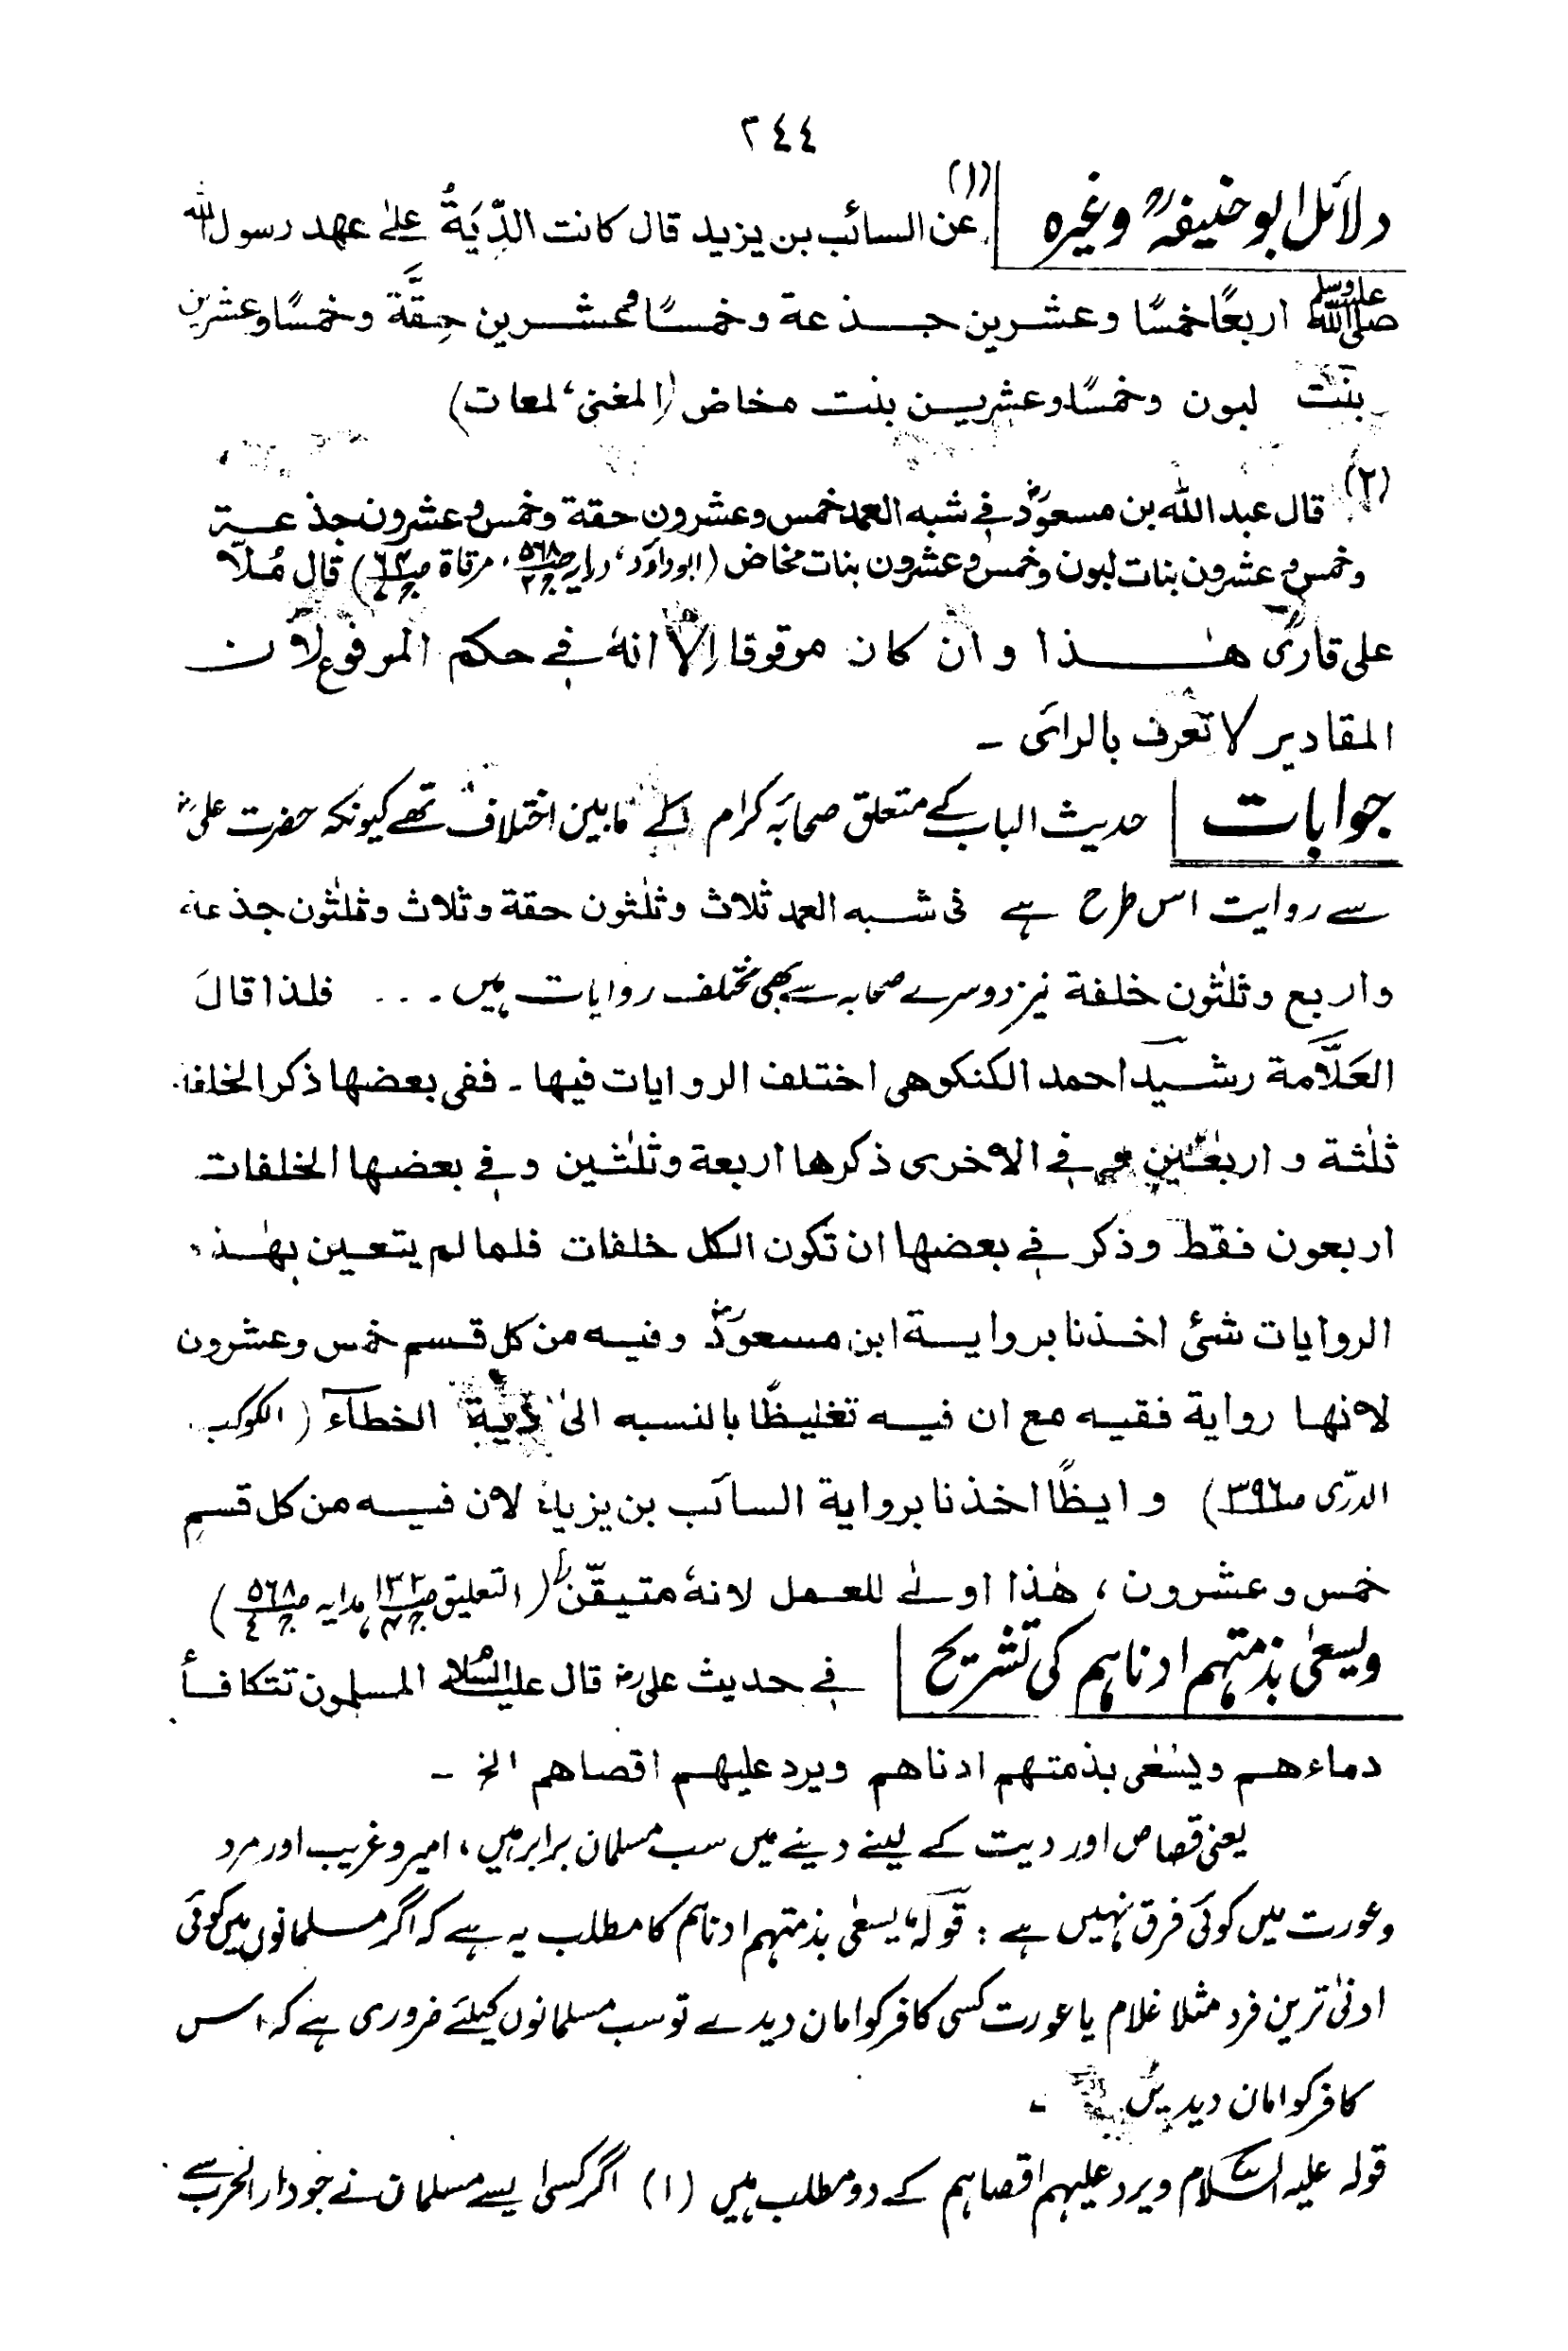 ٢٤٤
دلائل ابو حنیفہؒ وغیرہ (١) عن السائب بن يزيد قال كانت الدِّيَةُ علىٰ عهد رسول الله
صلى الله عليه وسلم اربعًا خمسًا وعشرين جذعة وخمسًا وعشرين حِقَّة وخمسًا وعشرين
بنت لبون وخمسًا وعشرين بنت مخاض (المغنى، لمعات)
(٢) قال عبد الله بن مسعودؓ في شبه العمد خمس وعشرون حقة وخمس وعشرون جذعة
وخمس وعشرون بنات لبون وخمس وعشرون بنات مخاض (ابوداؤد، ہدایہ ص٥٦٨ ج٢، مرقاة) قال مُلّا
على قارىؒ هٰذا وان كان موقوفا اِلّا انهٗ في حكم المرفوع لان
المقادير لا تعرف بالرائى ـ
جوابات حدیث الباب کے متعلق صحابۂ کرام کے مابین اختلاف تھے کیونکہ حضرت علیؓ
سے روایت اس طرح ہے فى شبه العمد ثلاث وثلٰثون حقة وثلاث وثلٰثون جذعة
واربع وثلٰثون خلفة نیز دوسرے صحابہ سے بھی مختلف روایات ہیں ... فلذا قالَ
العَلَّامة رشيد احمد الكنكوهى اختلف الروايات فيها ـ ففى بعضها ذكر الخلفة
ثلٰثة و اربعين وفي الاخرى ذكرها اربعة وثلٰثين وفي بعضها الخلفات
اربعون فقط وذكر في بعضها ان تكون الكل خلفات فلما لم يتعين بهٰذه
الروايات شئ اخذنا برواية ابن مسعودؓ وفيه من كل قسم خمس وعشرون
لانها رواية فقيه مع ان فيه تغليظًا بالنسبه الىٰ دية الخطاء (الكوكب
الدرّى ص٣٩٦) و ايظًا اخذنا برواية السائب بن يزيد لان فيه من كل قسم
خمس وعشرون، هٰذا اولىٰ للعمل لانهٗ متيقّن (التعليق ص١٣٢ ج٤، ہدایہ ص٥٦٨ ج٤)
ویسعیٰ بذمتہم ادناہم کی تشریح في حديث علىؓ قال عليه السّلام المسلمون تتكافأ
دماءهم ويسْعٰى بذمتهم ادناهم ويرد عليهم اقصاهم الخ ـ
یعنی قصاص اور دیت کے لینے دینے میں سب مسلمان برابر ہیں، امیر وغریب اور مرد
وعورت میں کوئی فرق نہیں ہے : قولہٗ یسعیٰ بذمتہم ادناہم کا مطلب یہ ہے کہ اگر مسلمانوں میں کوئی
ادنیٰ ترین فرد مثلا غلام یا عورت کسی کافر کو امان دیدے تو سب مسلمانوں کیلئے ضروری ہے کہ اس
کافر کو امان دیدیں ـ
قولہ علیہ السّلام ویرد علیہم اقصاہم کے دو مطلب ہیں (١) اگر کسی ایسے مسلمان نے جو دار الحرب سے